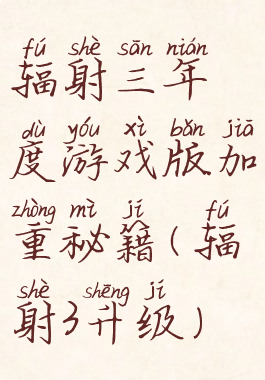 fú shè sān nián
辐射三年
dù yóu xì bǎn jiā
度游戏版加
zhòng mì jí fú
重秘籍(辐
shè shēng jí
射3升级)